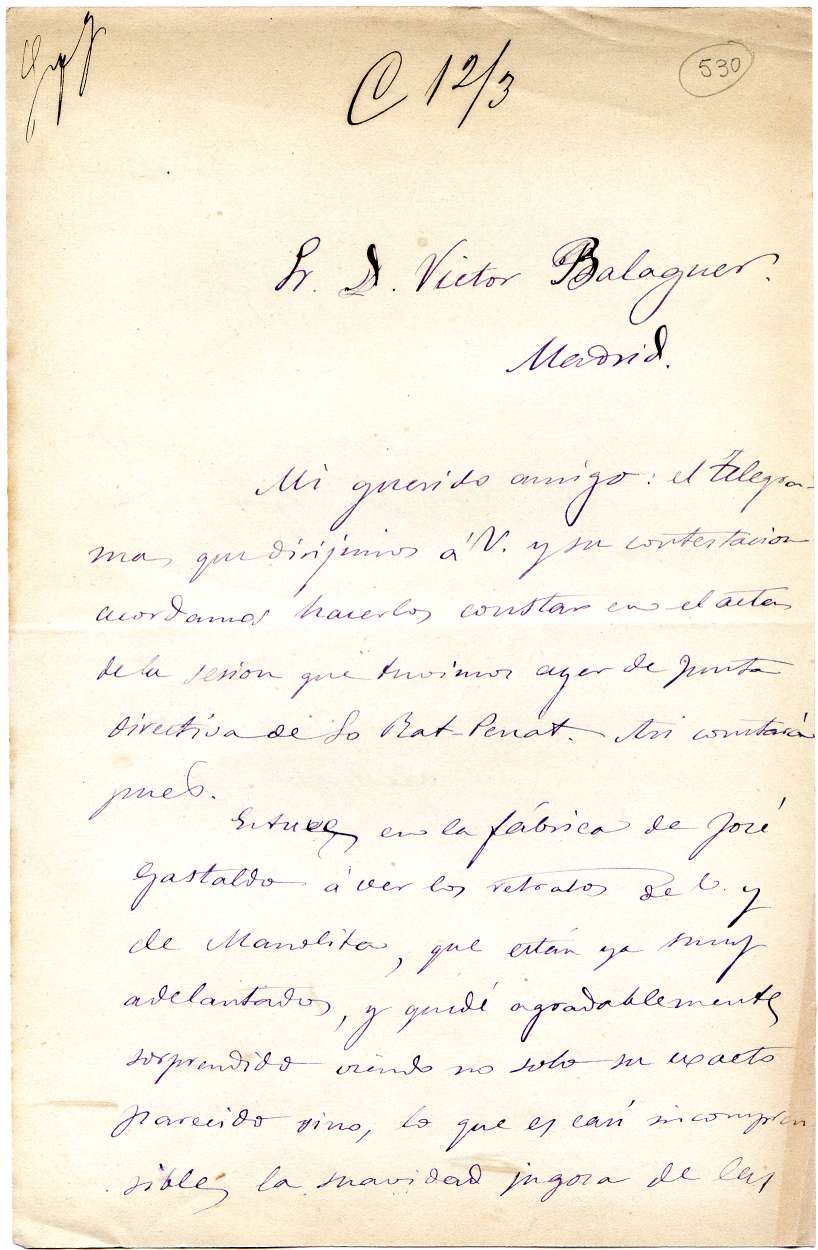 C 12/3
530
Sr. D. Victor Balaguer.
Madrid.
Mi querido amigo: el telegra-
mas que dirijimos á V. y su contestacion
acordamos hacerlos constar en el acta
de la sesion que tuvimos ayer de Junta
directiva de Lo Rat-Penat. Asi constará
pues.
Estuve en la fábrica de José
Gastaldo á ver los retratos de V. y
de Manolita, que están ya muy
adelantados, y quedé agradablemente
sorprendido viendo no solo su exacto
parecido sino, lo que es casi incompren
sible, la suavidad jugosa de las